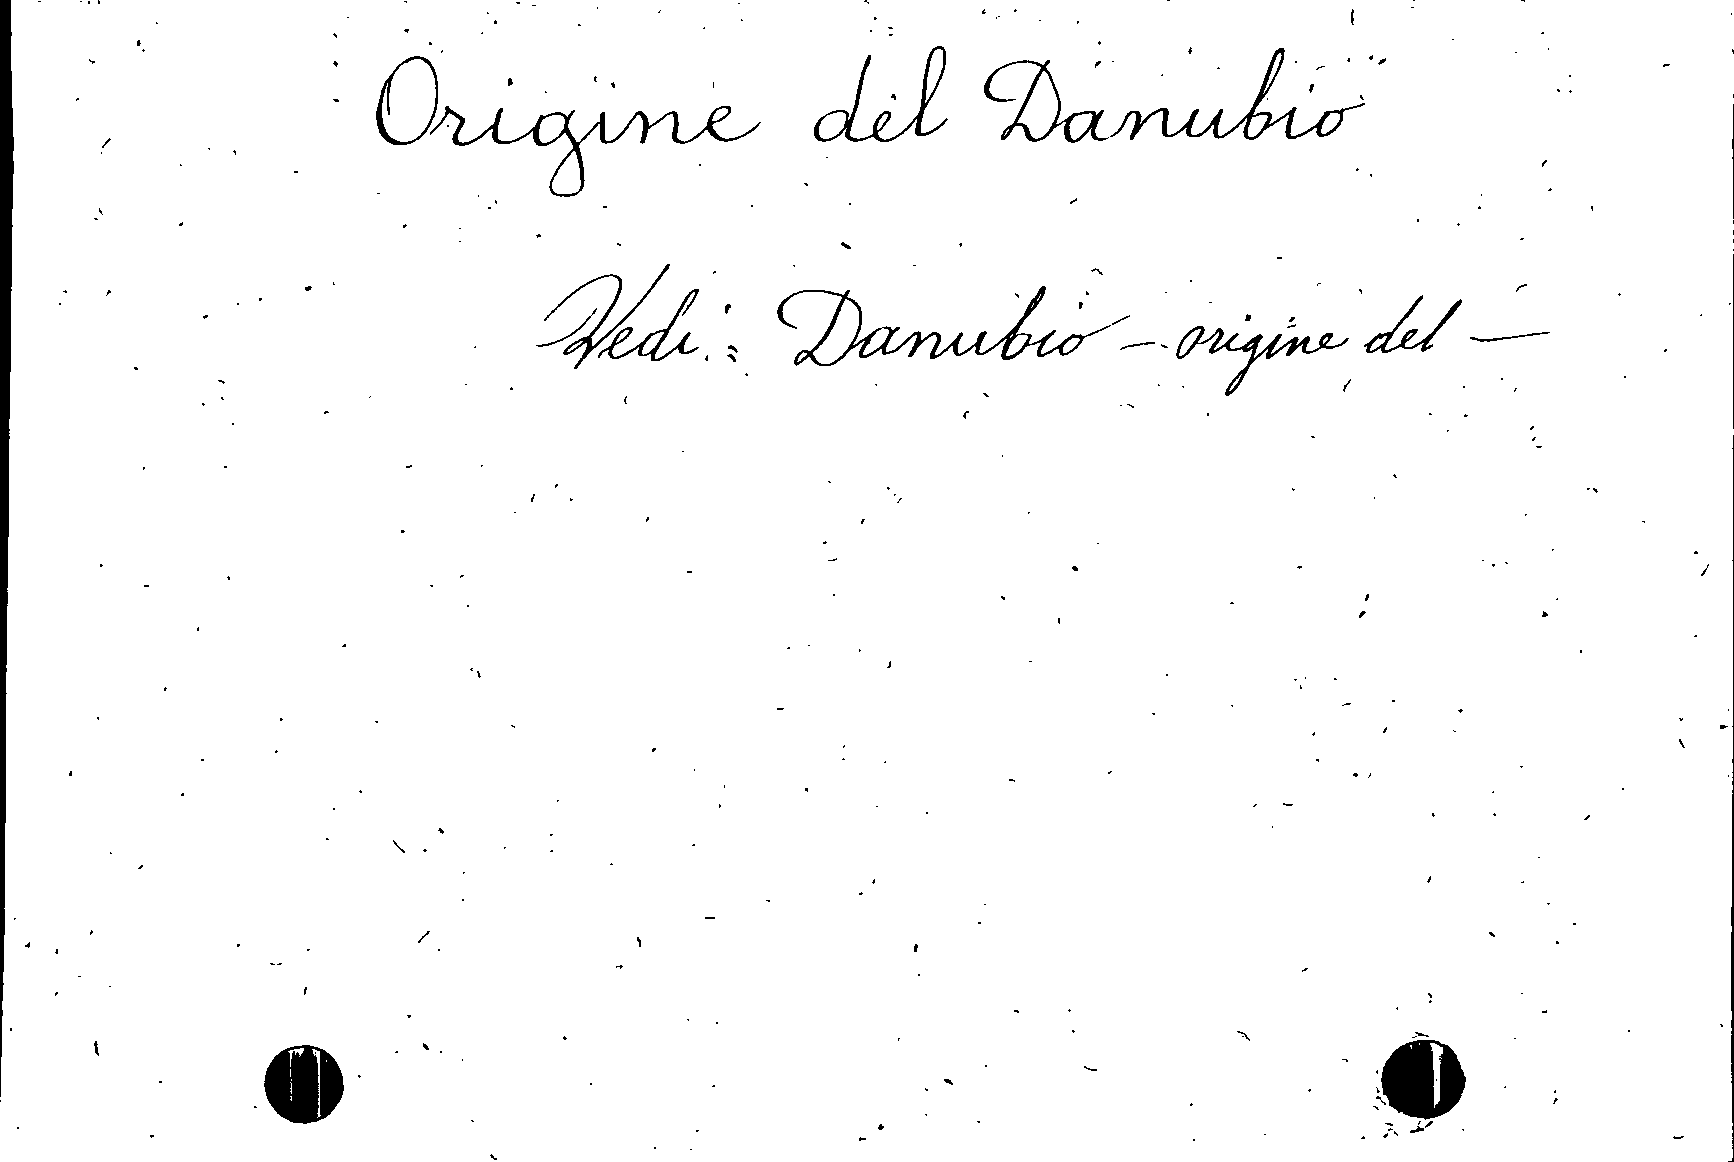 Origine del Danubio
Vedi: Danubio - origine del -